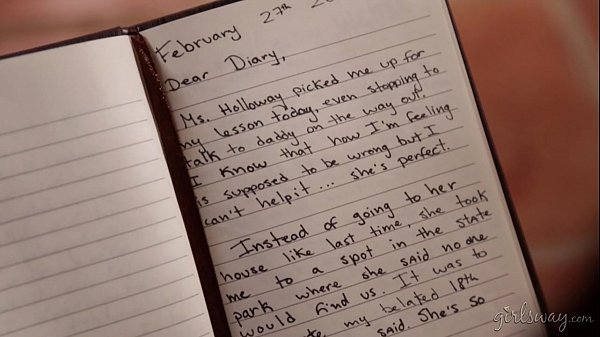 February 27th 20
Dear Diary,
Ms. Holloway picked me up for
my lesson today, even stopping to
talk to daddy on the way out.
I know that how I'm feeling
is supposed to be wrong but I
can't help it... she's perfect.
Instead of going to her
house like last time, she took
me to a spot in the state
park where she said no one
would find us. It was to
my belated 18th
said. She's so
girlsway.com